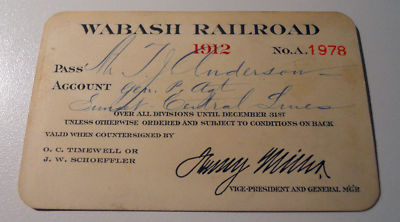 WABASH RAILROAD
1912 No.A.1978
PASS Mr T J Anderson
ACCOUNT Gen. P. Agt
Sunset-Central Lines
OVER ALL DIVISIONS UNTIL DECEMBER 31ST
UNLESS OTHERWISE ORDERED AND SUBJECT TO CONDITIONS ON BACK
VALID WHEN COUNTERSIGNED BY
O. C. TIMEWELL OR
J. W. SCHOEFFLER
Henry Miller
VICE-PRESIDENT AND GENERAL MG'R